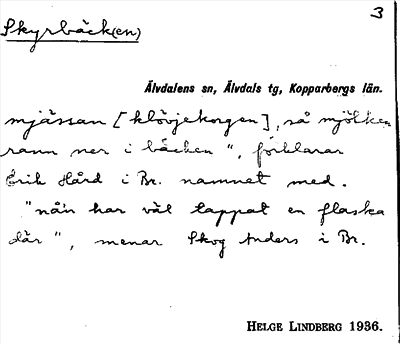 3
Skyrbäck(en)
Älvdalens sn, Älvdals tg, Kopparbergs län.
mjässan [klövjekorgen], så mjölken
rann ner i bäcken", förklarar
Erik Hård i Br. namnet med.
"nån har väl tappat en flaska
där", menar Skog Anders i Br.
HELGE LINDBERG 1936.